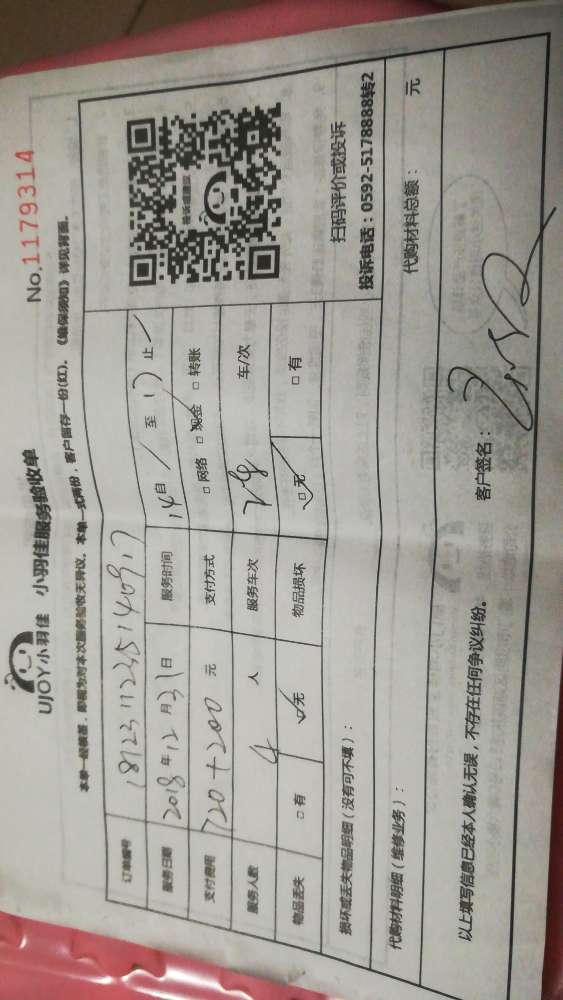 UJOY小羽佳 小羽佳服务验收单
No.1179314
本单一经核签，即视为对本次服务验收无异议。本单一式两份，客户留存一份(红)。《维保须知》详见背面。
订单编号
服务日期 2018年12月31日 服务时间 14自 / 至 17止
支付费用 720+200元 支付方式 □网络 □现金 □转账
服务人数 4 人 服务车次 车/次
物品丢失 □有 □无 物品损坏 □无 □有
投诉或建议
扫码评价或投诉
投诉电话：0592-5178888转2
损坏或丢失物品明细（没有可不填）：
代购材料明细（维修业务）： 代购材料总额： 元
以上填写信息已经本人确认无误，不存在任何争议纠纷。
客户签名：